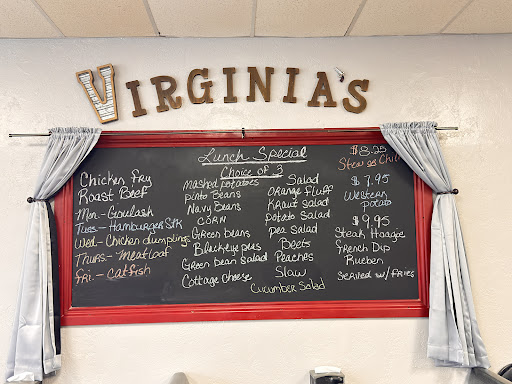 VIRGINIAS
Lunch Special
Choice of 3
Chicken Fry
Roast Beef
Mon - Goulash
Tues - Hamburger Stk
Wed - Chicken dumplings
Thurs - Meatloaf
Fri. - Catfish
Mashed potatoes
Pinto Beans
Navy Beans
CORN
Green beans
Blackeye peas
Green bean Salad
Cottage Cheese
Salad
Orange Fluff
Kraut Salad
Potato Salad
Pea Salad
Beets
Peaches
Slaw
Cucumber Salad
$8.25
Stew or Chili
$7.95
Western
Potato
$9.95
Steak Hoagie
French Dip
Rueben
Served w/ fries